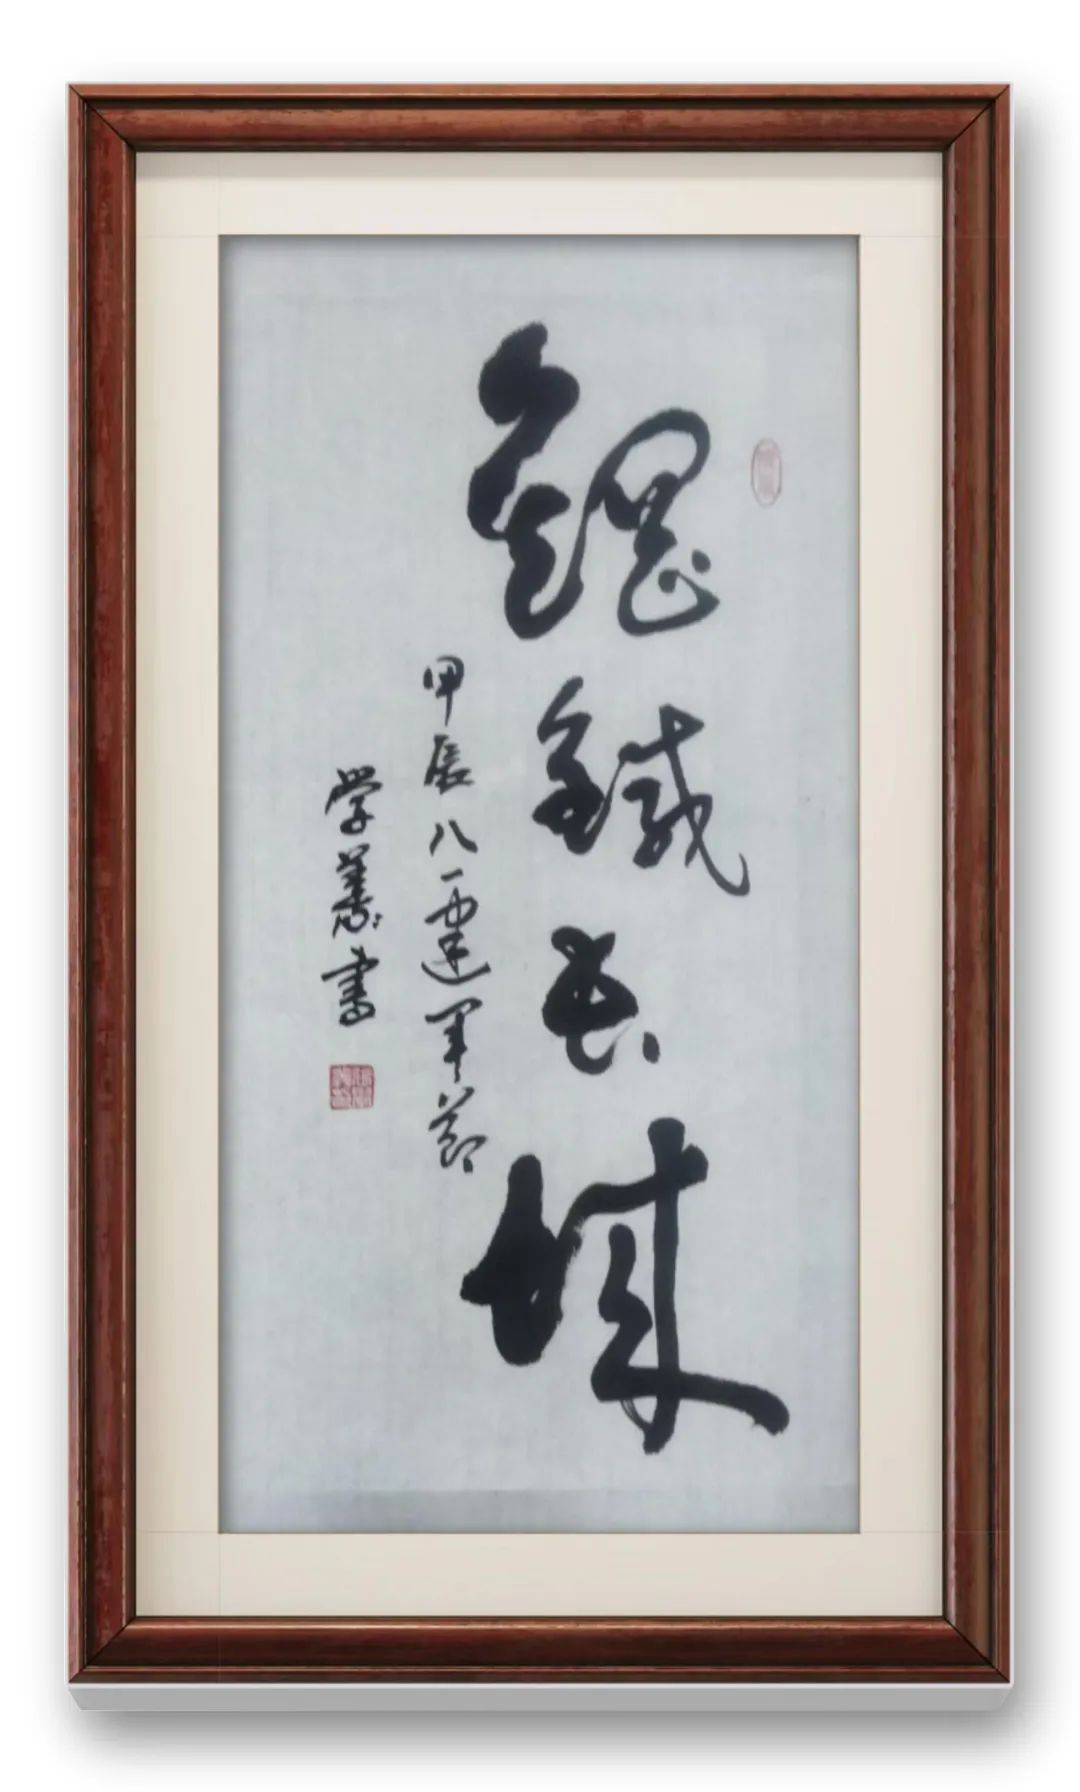 鋼鐵長城
甲辰八一建軍節
学善書